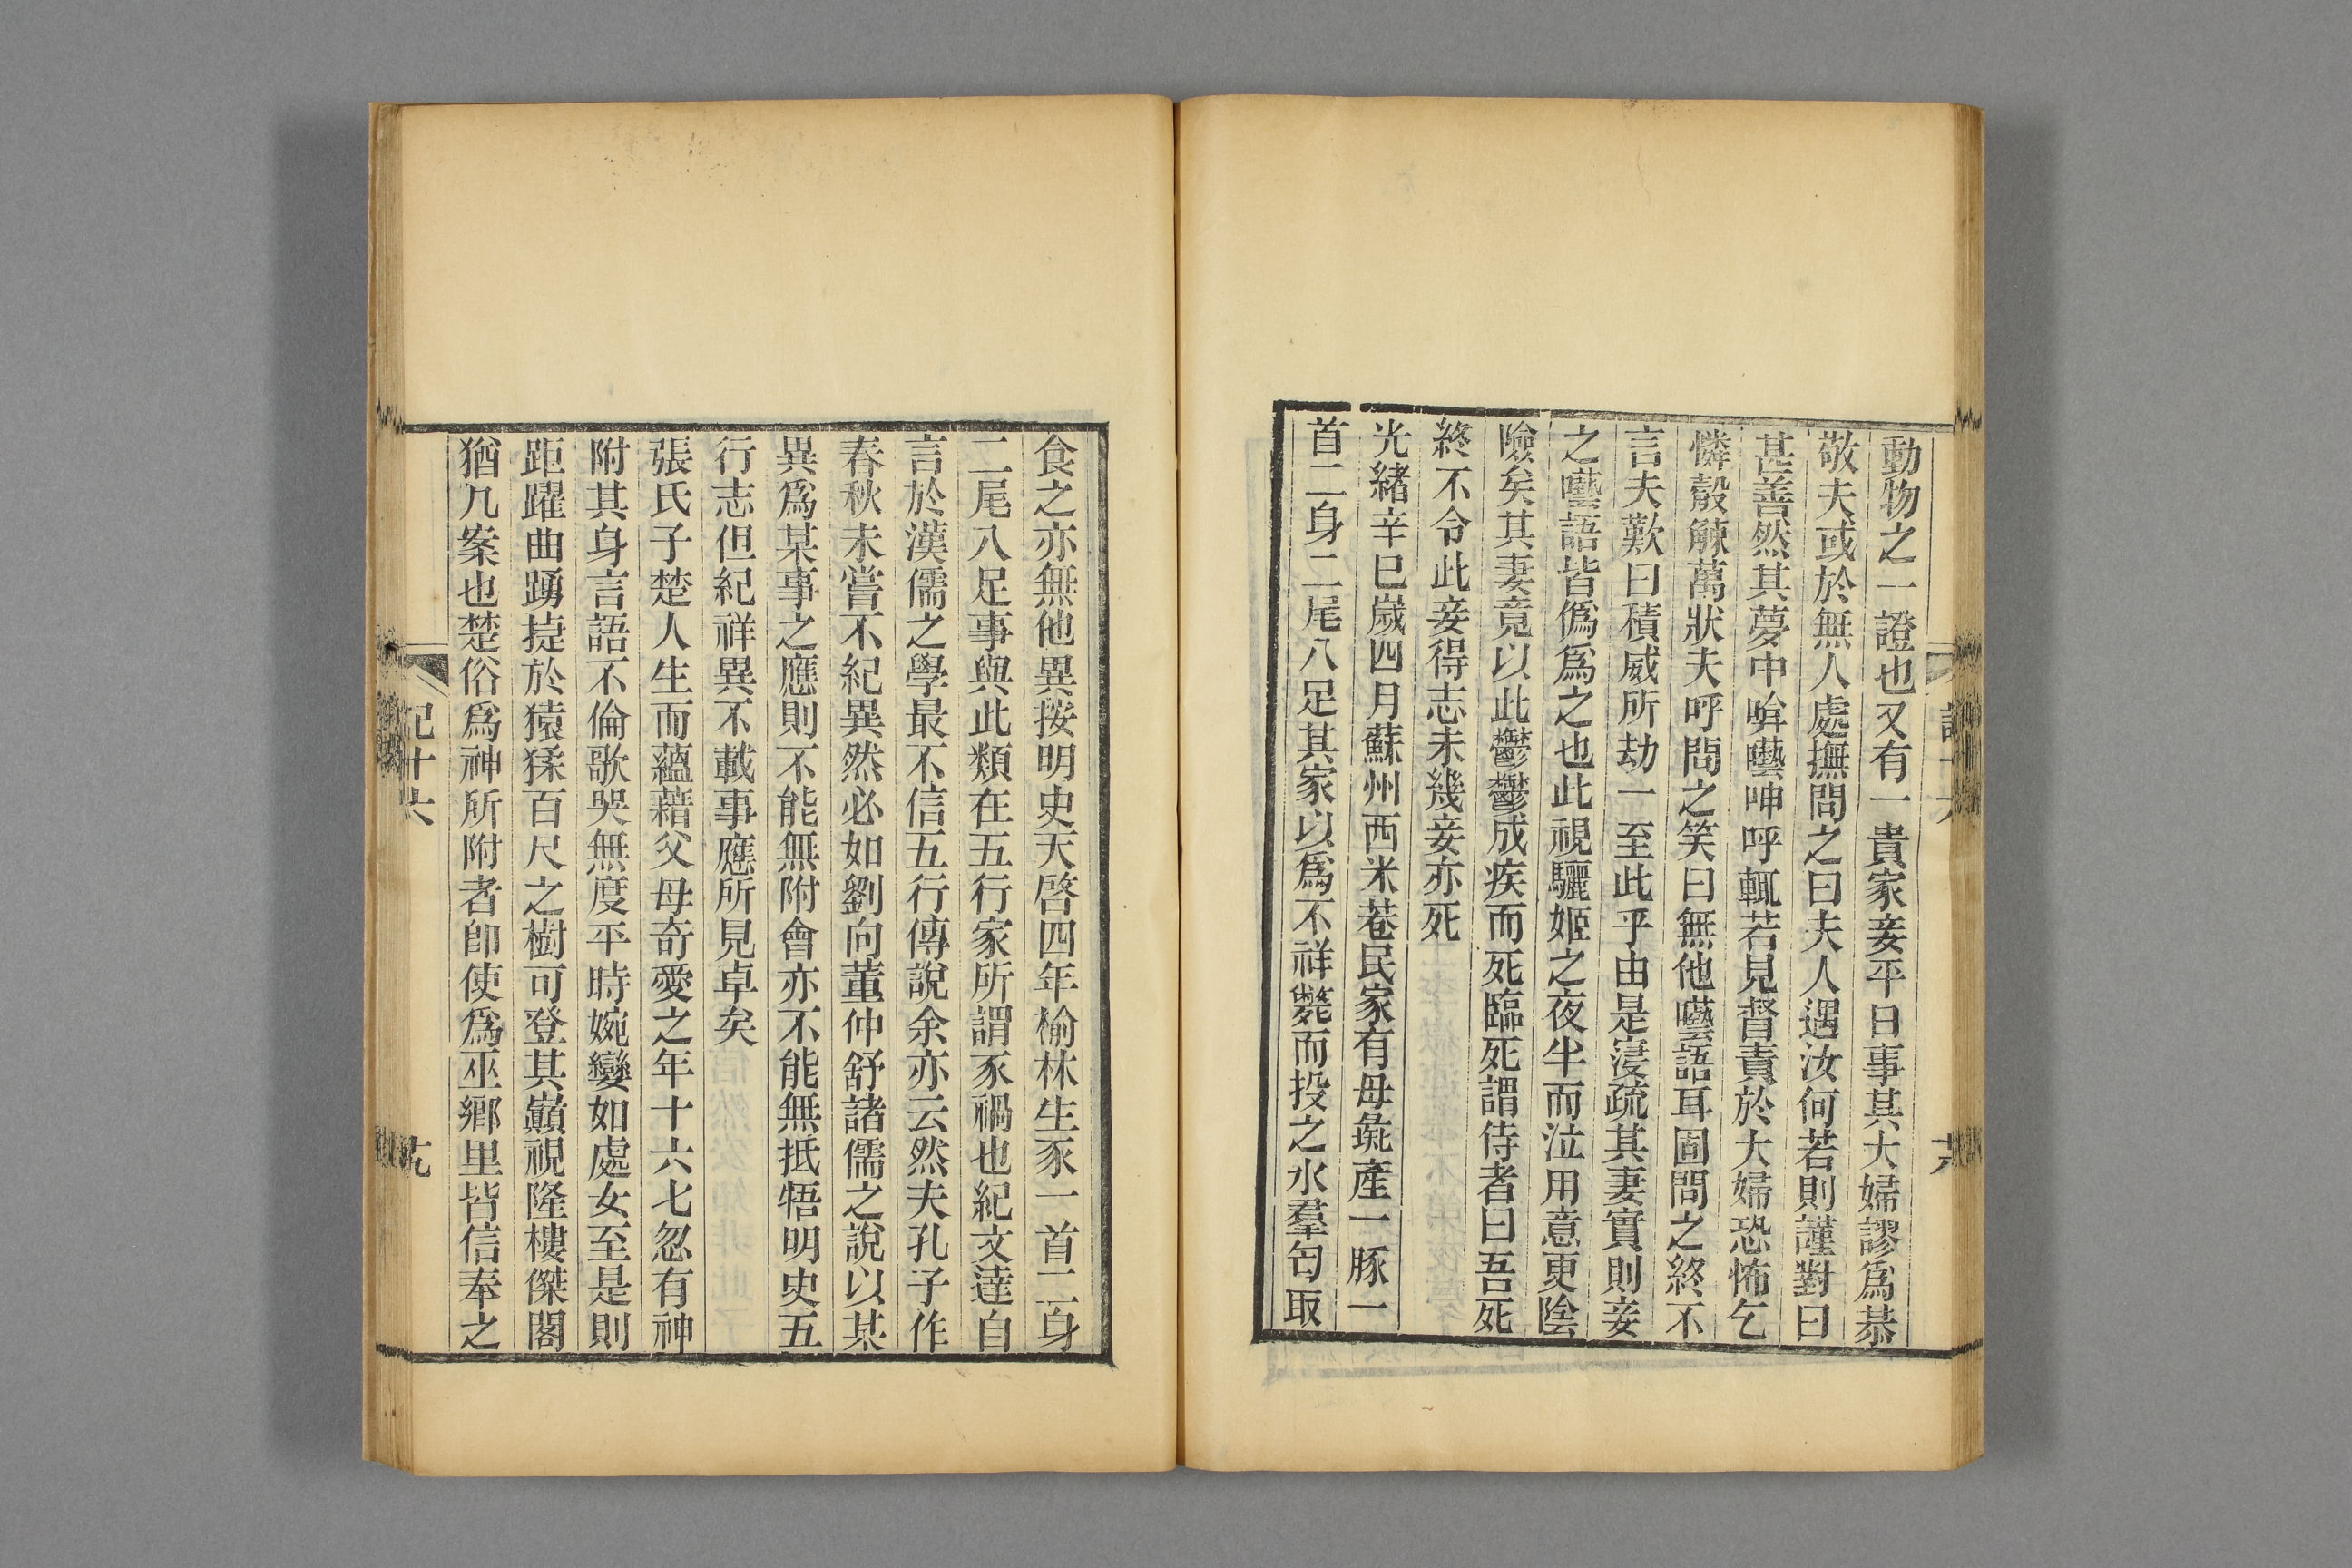 動物之一證也又有一貴家妾平日事其大婦謬爲恭
敬夫或於無人處撫問之曰夫人遇汝何若則謹對曰
甚善然其夢中哰囈呻呼輒若見督責於大婦恐怖乞
憐觳觫萬狀夫呼問之笑曰無他囈語耳固問之終不
言夫歎曰積威所劫一至此乎由是寖疏其妻實則妾
之囈語皆僞爲之也此視驪姬之夜半而泣用意更陰
險矣其妻竟以此鬱鬱成疾而死臨死謂侍者曰吾死
終不令此妾得志未幾妾亦死
光緒辛巳嵗四月蘇州西米巷民家有母彘產一豚一
首二身二尾八足其家以爲不祥斃而投之水羣匄取
食之亦無他異按明史天啓四年榆林生豕一首二身
二尾八足事與此類在五行家所謂豕禍也紀文達自
言於漢儒之學最不信五行傳說余亦云然夫孔子作
春秋未嘗不紀異然必如劉向董仲舒諸儒之說以某
異爲某事之應則不能無附會亦不能無抵牾明史五
行志但紀祥異不載事應所見卓矣
張氏子楚人生而蘊藉父母奇愛之年十六七忽有神
附其身言語不倫歌哭無度平時婉孌如處女至是則
距躍曲踴捷於猿猱百尺之樹可登其巔視隆樓傑閣
猶几案也楚俗爲神所附者卽使爲巫鄉里皆信奉之
記十六